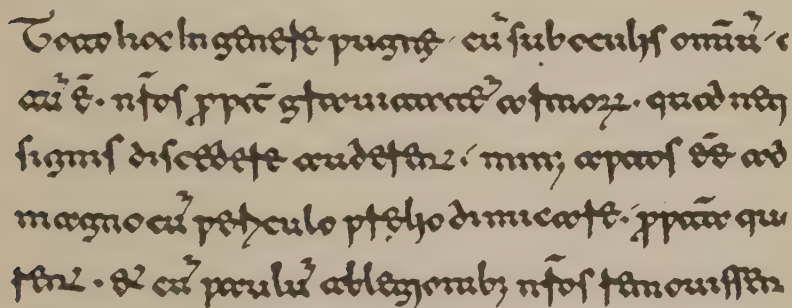 Toto hoc In genere pugnę · cū sub oculis om̄iū ·
ctū ē · nr̄os ꝓpt̄ grauitatē armoꝝ · quod neq
signis discedere auderent · min; aptos ēē ad
magno cū periculo prelio dimicare · ꝓpt̄ea qu
rent · & cū paulū ablegionib; nr̄os remouissen